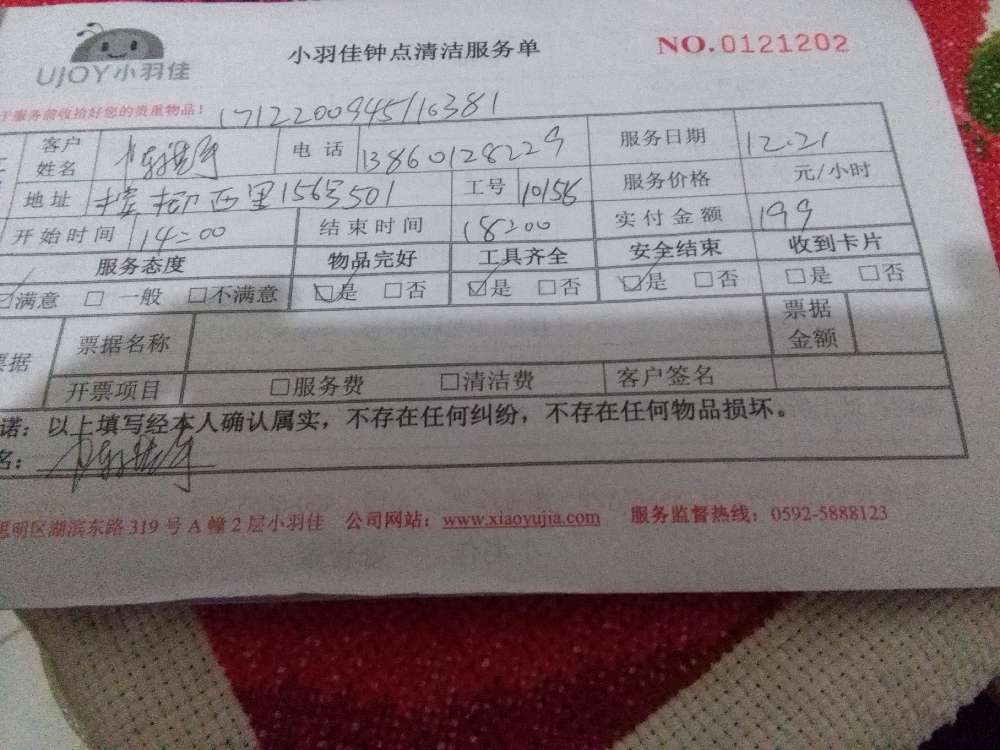 UJOY小羽佳
小羽佳钟点清洁服务单
NO.0121202
于服务前收拾好您的贵重物品!
1712200945116381
客户姓名 电话 13860128229 服务日期 12.21
地址 西里156号501 工号 10156 服务价格 元/小时
开始时间 14:00 结束时间 18:00 实付金额 199
服务态度 物品完好 工具齐全 安全结束 收到卡片
☑满意 □一般 □不满意 ☑是 □否 ☑是 □否 ☑是 □否 □是 □否
票据 票据名称 票据金额
开票项目 □服务费 □清洁费 客户签名
诺:以上填写经本人确认属实,不存在任何纠纷,不存在任何物品损坏。
名:
思明区湖滨东路319号A幢2层小羽佳 公司网站:www.xiaoyujia.com 服务监督热线:0592-5888123